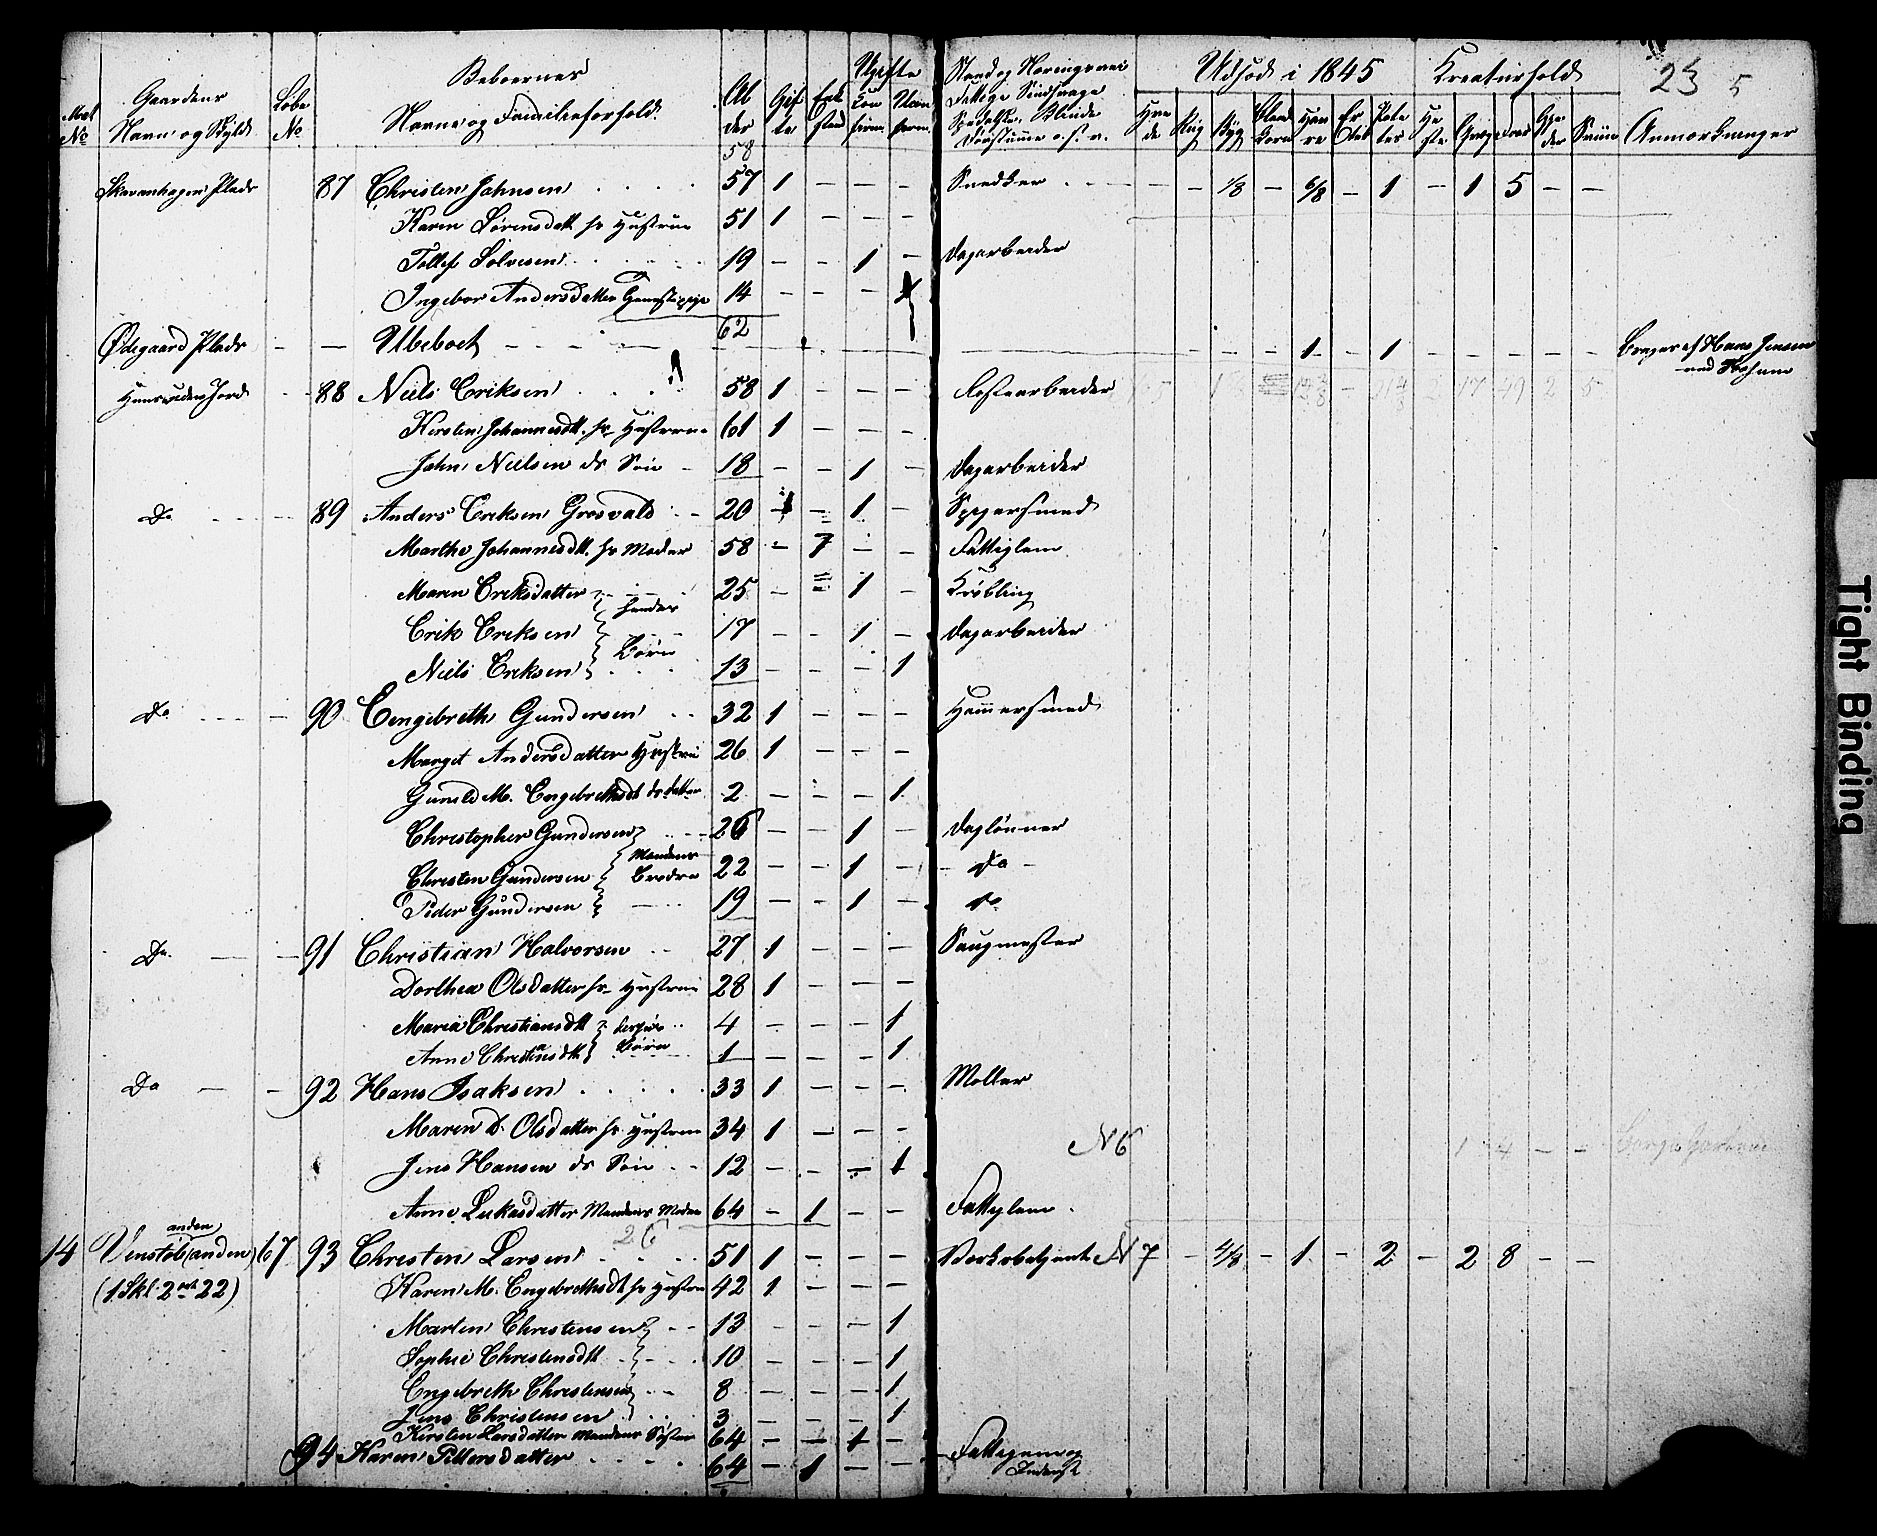 Beboernes Ugifte Stand og Næringsvei Udsæd i 1845 Kreaturhold 23 5
Gaardens Løbe Al Gif Enke Kon Man Fattige Sindsvage
Mat No Navn og Skyld No Navne og Familieforhold der te stand firm. firm. Spedalske, Blinde Døvstumme o. s. v. Hvede Rug Byg Bland korn Havre Erter Potetes Heste Faar Gjeder Sviin Anmærkninger
58
Skavanhagen Plads 87 Christen Johnsen 57 1 - - - Snedker - - 1/8 - 6/8 - 1 - 1 5 - -
Karen Sørensdatt hs Hustrue 51 1 - - -
Tollef Solvesen 19 - - 1 - Dagarbeider
Ingebor Andersdatter Tjenestepige 14 - - - 1
62
Ødegaard Plads - - Ubeboet - - - 1 - 1 - - - - - Bruges af Hans Jensen
88 Niels Eriksen 58 1 - - -
Kirsten Johannesdtt. hs Hustrue 61 1 - - -
John Nielsen ds Søn 18 - - 1 - Dagarbeider
Do 89 Anders Eriksen Grosvald 20 - 1 - Spigersmed
Marthe Johannesdtt. hs Moder 58 - 1 - - Fattiglem
Maren Eriksdatter 25 - 1 - Krøbling
hendes
Erik Eriksen 17 - - 1 - Dagarbeider
Børn
Niels Eriksen 13 - - - 1
Do 90 Eengebreth Gundersen 32 1 - - - Hammersmed
Marget Andersdatter Hustrue 26 1 - - -
Gunild M. Engebrethsdt ds datter 2 - - - 1
Christopher Gundersen 26 - - 1 - Daglønner
Mandens
Christen Gundersen Brødre 22 - - 1 - Do
Peder Gundersen 19 - - 1 - do
Do. 91 Christian Halvorsen 27 1 - - - Saugmester
Dorthea Olsdatter hs Hustrue 28 1 - - -
Maria Christiansdtt 4 - - - 1
Børn
Anne Christiansdtt 1 - - - 1
Do 92 Hans Isaksen 33 1 - - - Møller
Maren D. Olsdatter hs. Hustrue 34 1 - - - N 6
Jens Hansen ds Søn 12 - - - 1 1 4 - -
Anne Lukasdatter Mandens Moder 64 - 1 - - Fattiglem.
anden 26
14 Venstøb (anden) 67 93 Christen Larsen 51 1 - - - N 7 - 4/8 - 1 - 2 - 2 8 - -
(1 Skl. 2 ort 22) Karen M. Engebrethsdt hs Hustrue 42 1 - - -
Marten Christensen 13 - - - 1
Sophie Christensdtt 10 - - - 1
Engebreth Christensen 8 - - - 1
Jens Christensen 3 - - - 1
Kirsten Larsdatter Mandens Søster 64 - - 1 - -
94 Karen Pettersdatter 64 - 1 - -
Tight Binding